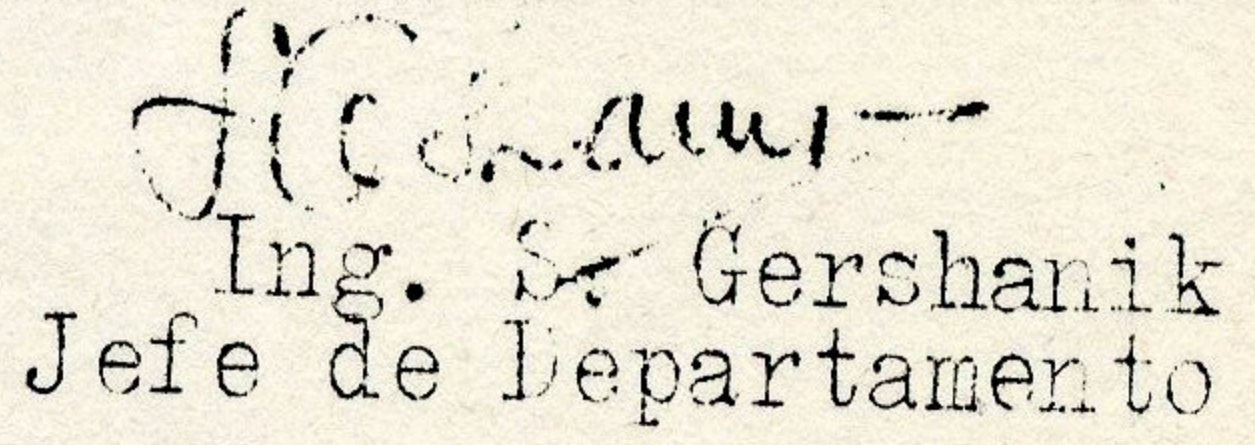 Ing. S. Gershanik
Jefe de Departamento